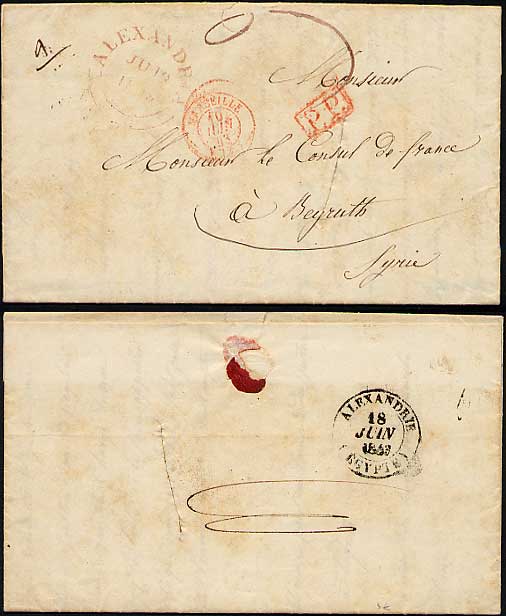 ALEXANDRIE
JUIN
MARSEILLE
10
JUIN
P.P.
Monsieur
Monsieur le Consul de france
à Beyruth
Syrie
ALEXANDRIE
18
JUIN
(EGYPTE)